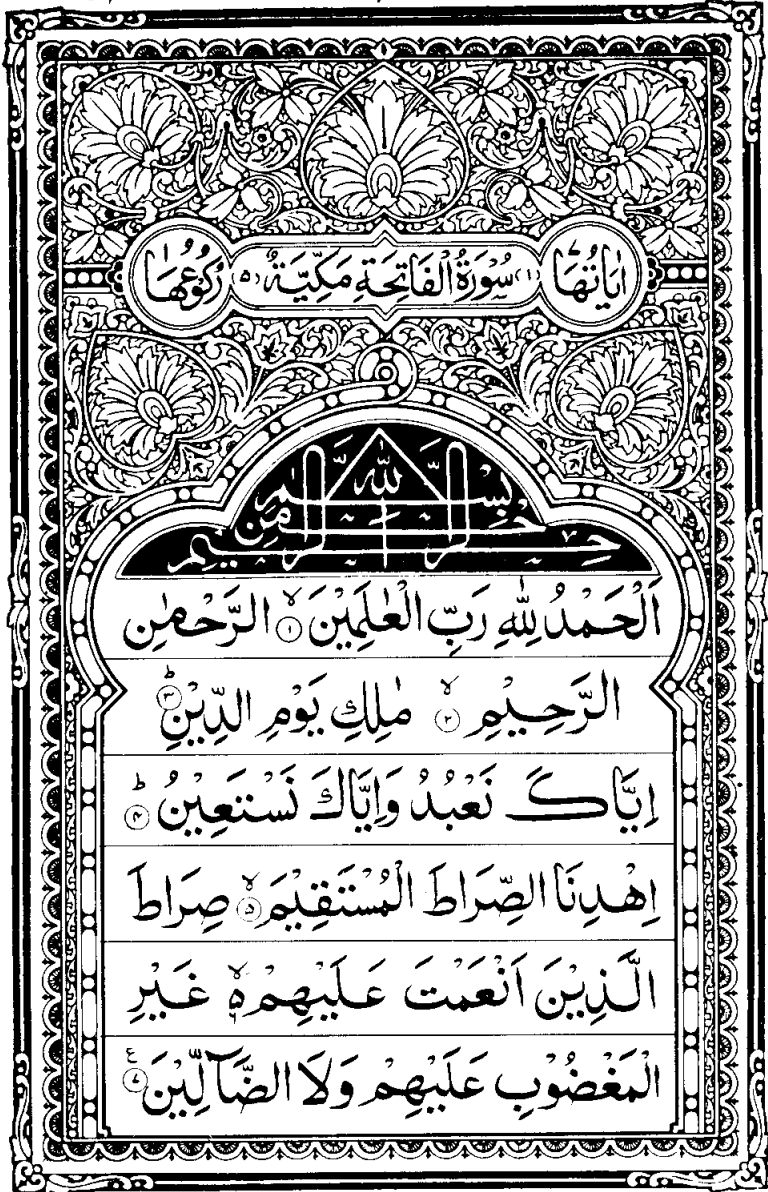 اٰيَاتُهَا ٧ (١) سُوْرَةُ الْفَاتِحَةِ مَكِّيَّةٌ (٥) رُكُوْعُهَا ١
بِسْمِ اللّٰهِ الرَّحْمٰنِ الرَّحِيْمِ
اَلْحَمْدُ لِلّٰهِ رَبِّ الْعٰلَمِيْنَ ۙ ﴿١﴾ الرَّحْمٰنِ
الرَّحِيْمِ ۙ ﴿٢﴾ مٰلِكِ يَوْمِ الدِّيْنِ ؕ ﴿٣﴾
اِيَّاكَ نَعْبُدُ وَاِيَّاكَ نَسْتَعِيْنُ ؕ ﴿٤﴾
اِهْدِنَا الصِّرَاطَ الْمُسْتَقِيْمَ ۙ ﴿٥﴾ صِرَاطَ
الَّذِيْنَ اَنْعَمْتَ عَلَيْهِمْ ۙ۬ غَيْرِ
الْمَغْضُوْبِ عَلَيْهِمْ وَلَا الضَّآلِّيْنَ ﴿٧﴾ ع